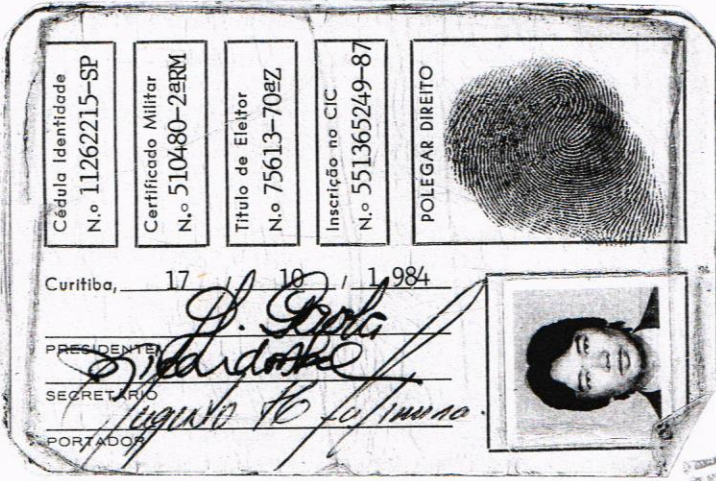 Cédula Identidade
N.o 11262215-SP
Certificado Militar
N.o 510480-2ªRM
Título de Eleitor
N.o 75613-70ªZ
Inscrição no CIC
N.o 551365249-87
POLEGAR DIREITO
Curitiba, 17 / 10 / 1.984
PRESIDENTE
SECRETÁRIO
PORTADOR